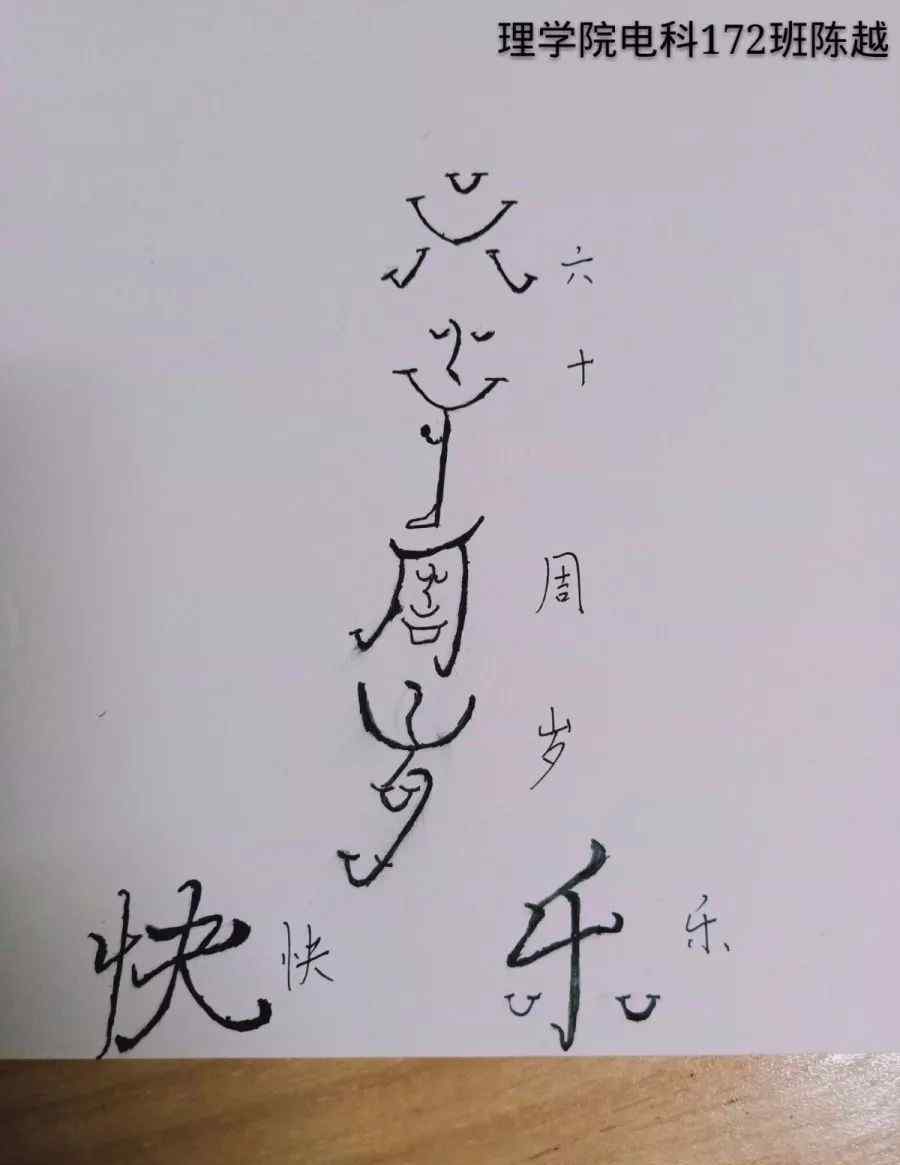 理学院电科172班陈越
六 六
十 十
周 周
岁 岁
快 快 乐 乐